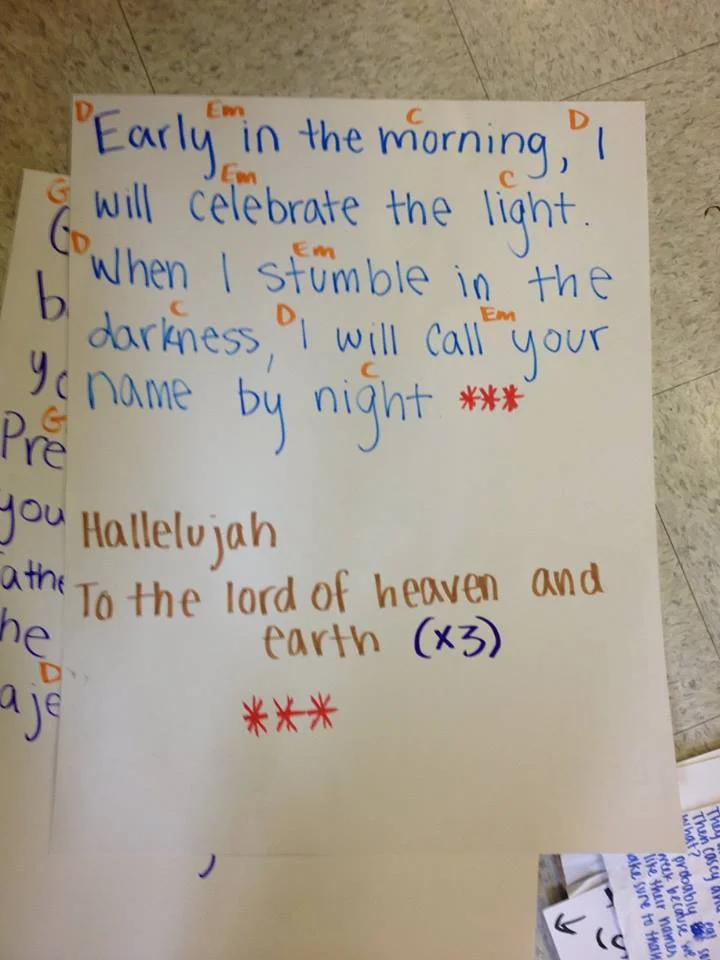 D Em C D
Early in the morning, I
Em C
will celebrate the light.
D Em
When I stumble in the
C D Em
darkness, I will call your
C
name by night ***
Hallelujah
To the lord of heaven and
earth (x3)
***
G
b
yo
G
Pre
you
athe
he
D
aje
They
Then casey and
what?
probably
week because we
like their names
ake sure to than